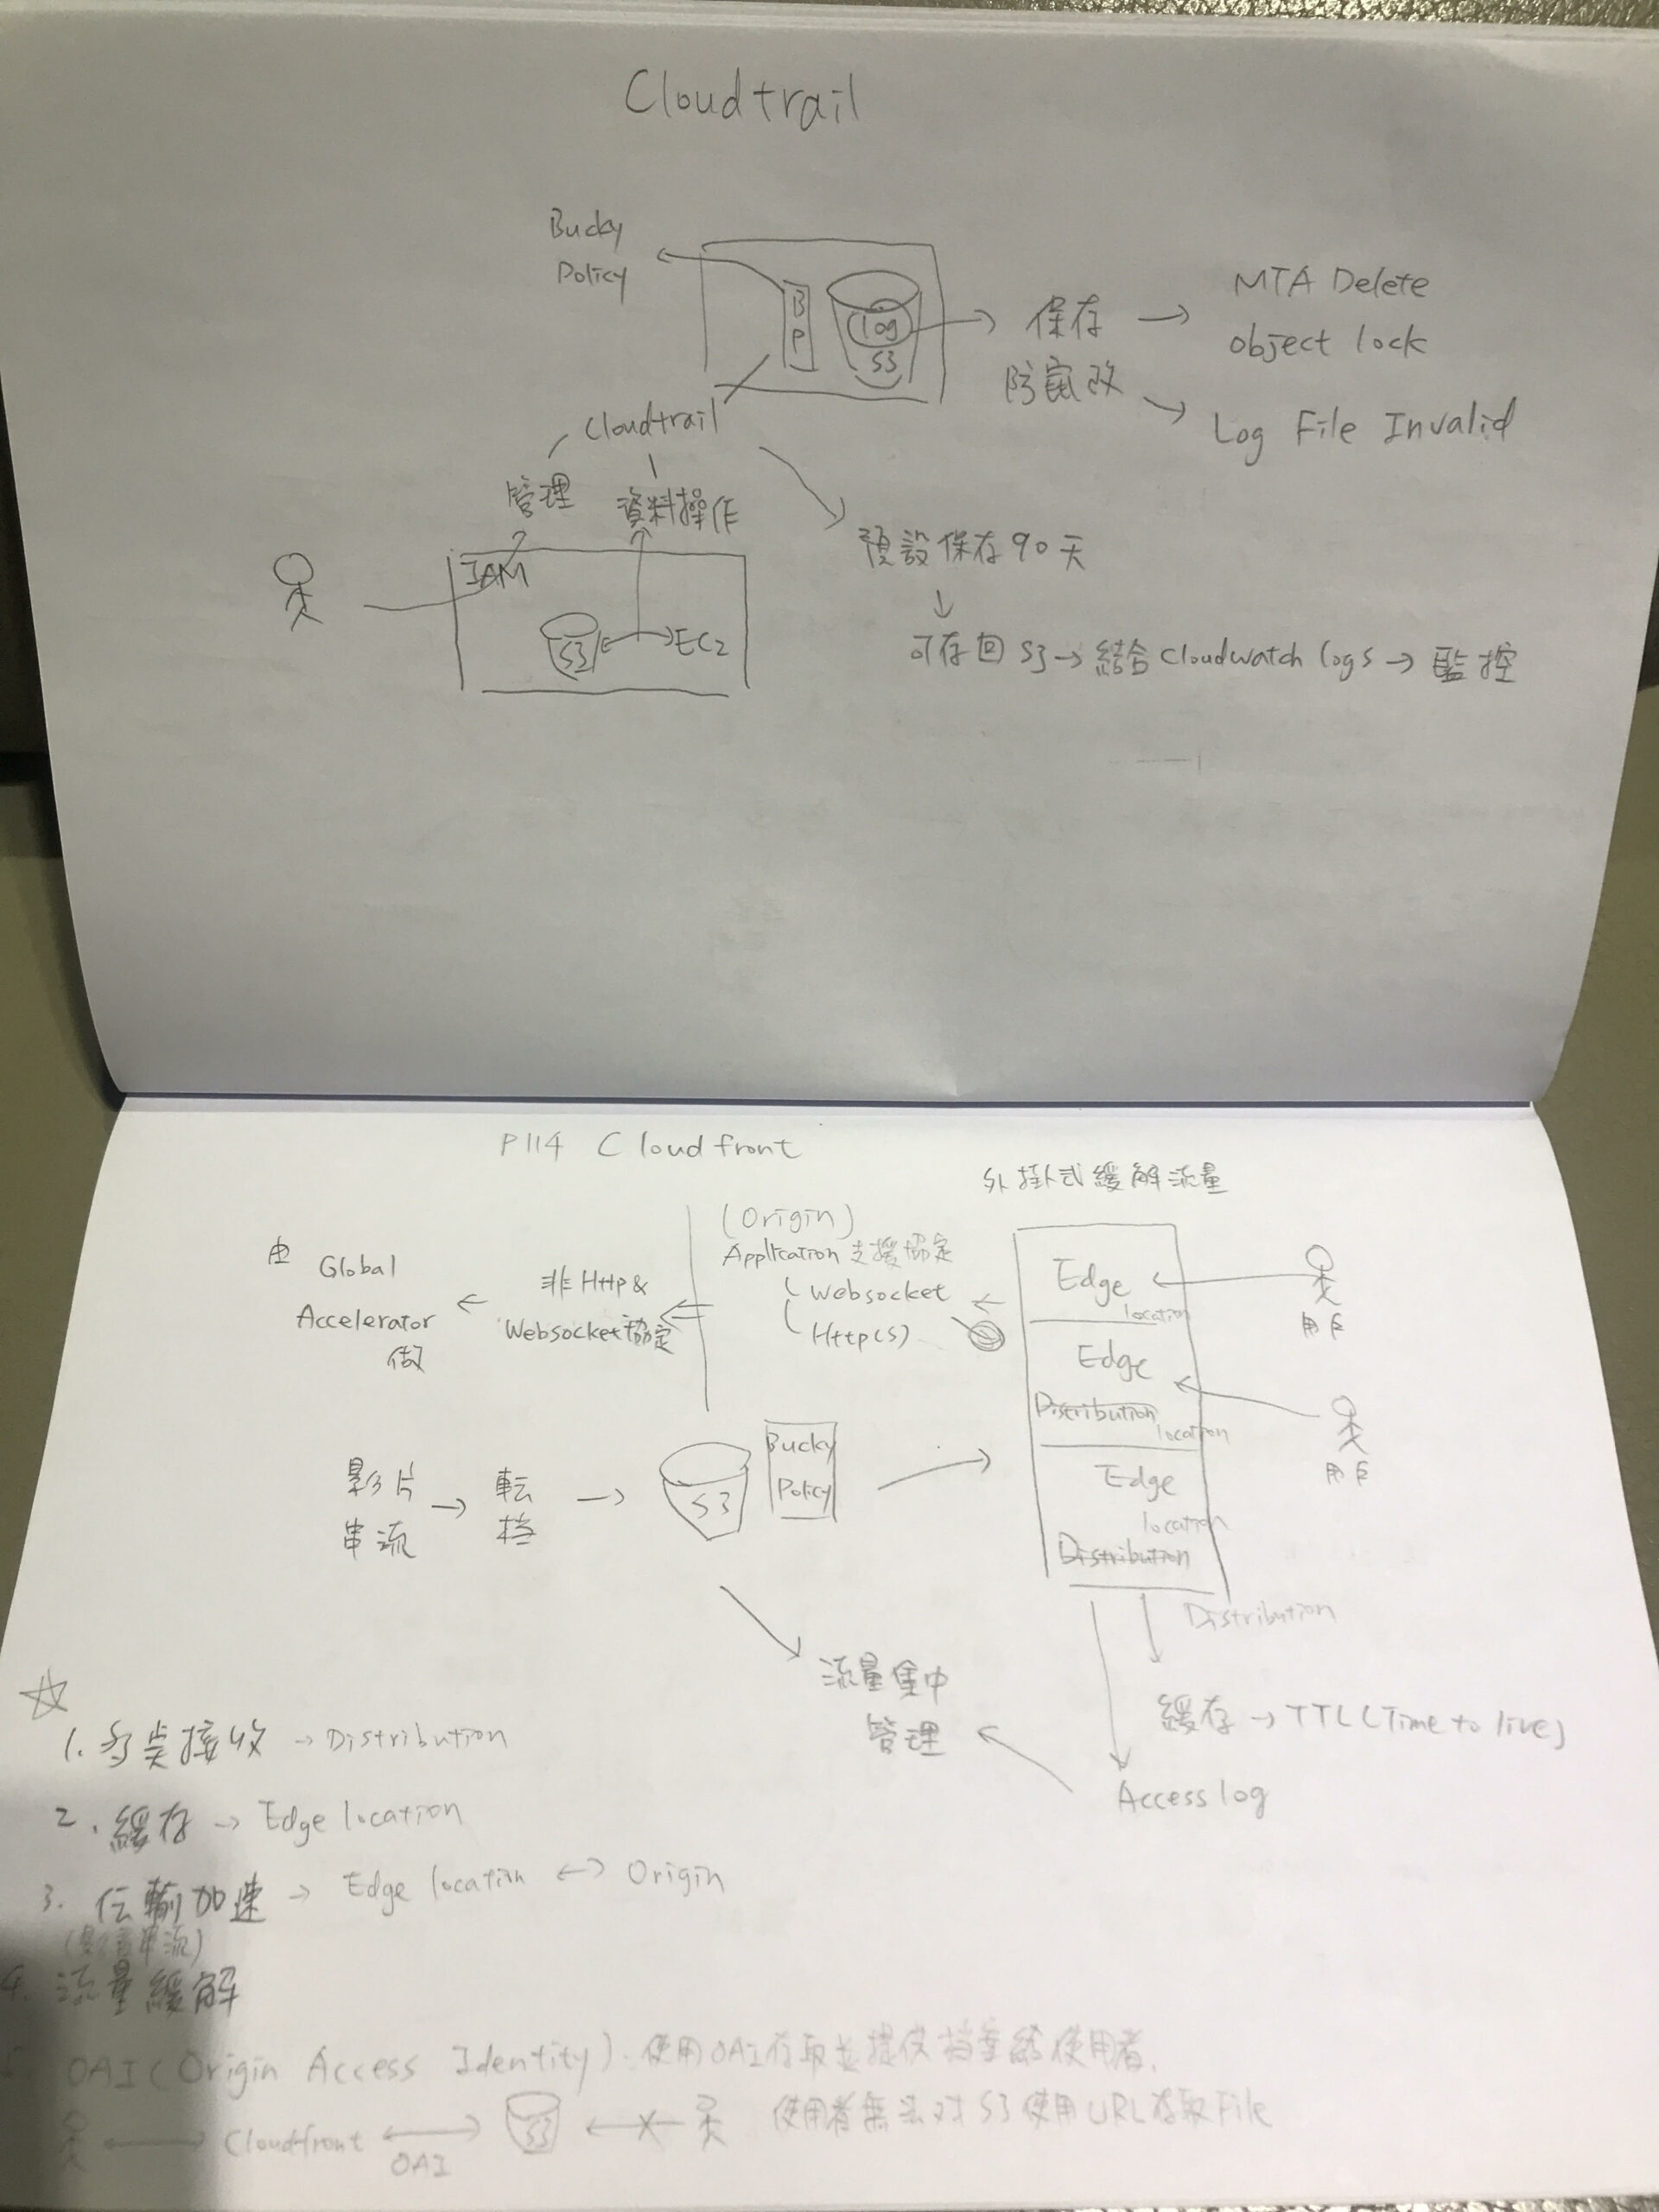 Cloudtrail
Bucky
Policy
B
P
log
S3
保存
防竄改
MTA Delete
object lock
Log File Invalid
Cloudtrail
管理
資料操作
IAM
S3
EC2
預設保存90天
可存回S3→結合Cloudwatch logs→監控
P114 Cloudfront
外掛式緩解流量
(Origin)
Application支援協定
Websocket
Http(s)
非Http&
Websocket協定
由 Global
Accelerator
做
Edge
location
Edge
Distribution
location
Edge
location
Distribution
用戶
用戶
影片
串流
→
転
档
→
S3
Bucky
Policy
Distribution
流量集中
管理
緩存→TTL(Time to live)
Access log
1. 多點接收→Distribution
2. 緩存→Edge location
3. 伝輸加速→Edge location ↔ Origin
(影音串流)
4. 流量緩解
5. OAI(Origin Access Identity). 使用OAI存取並提供档案給使用者.
Cloudfront
OAI
S3
使用者無法对S3使用URL存取File